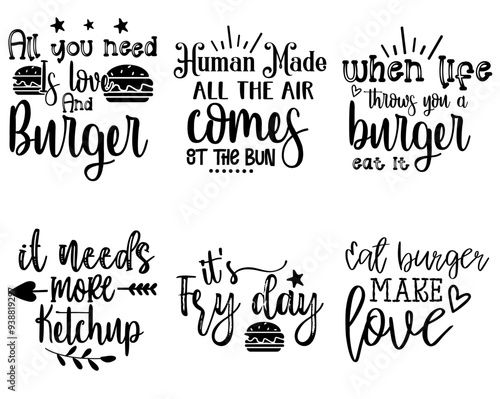 All you need
Is love
And
Burger
Human Made
ALL THE AIR
comes
at THE BUN
when life
throws you a
burger
eat It
it needs
MORE
Ketchup
it's
Fry day
Eat burger
MAKE
love
Adobe Stock